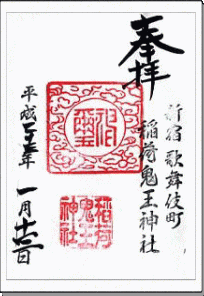 奉拝
新宿歌舞伎町
稲荷鬼王神社
平成二十五年一月十二日
稲荷
鬼王
神社